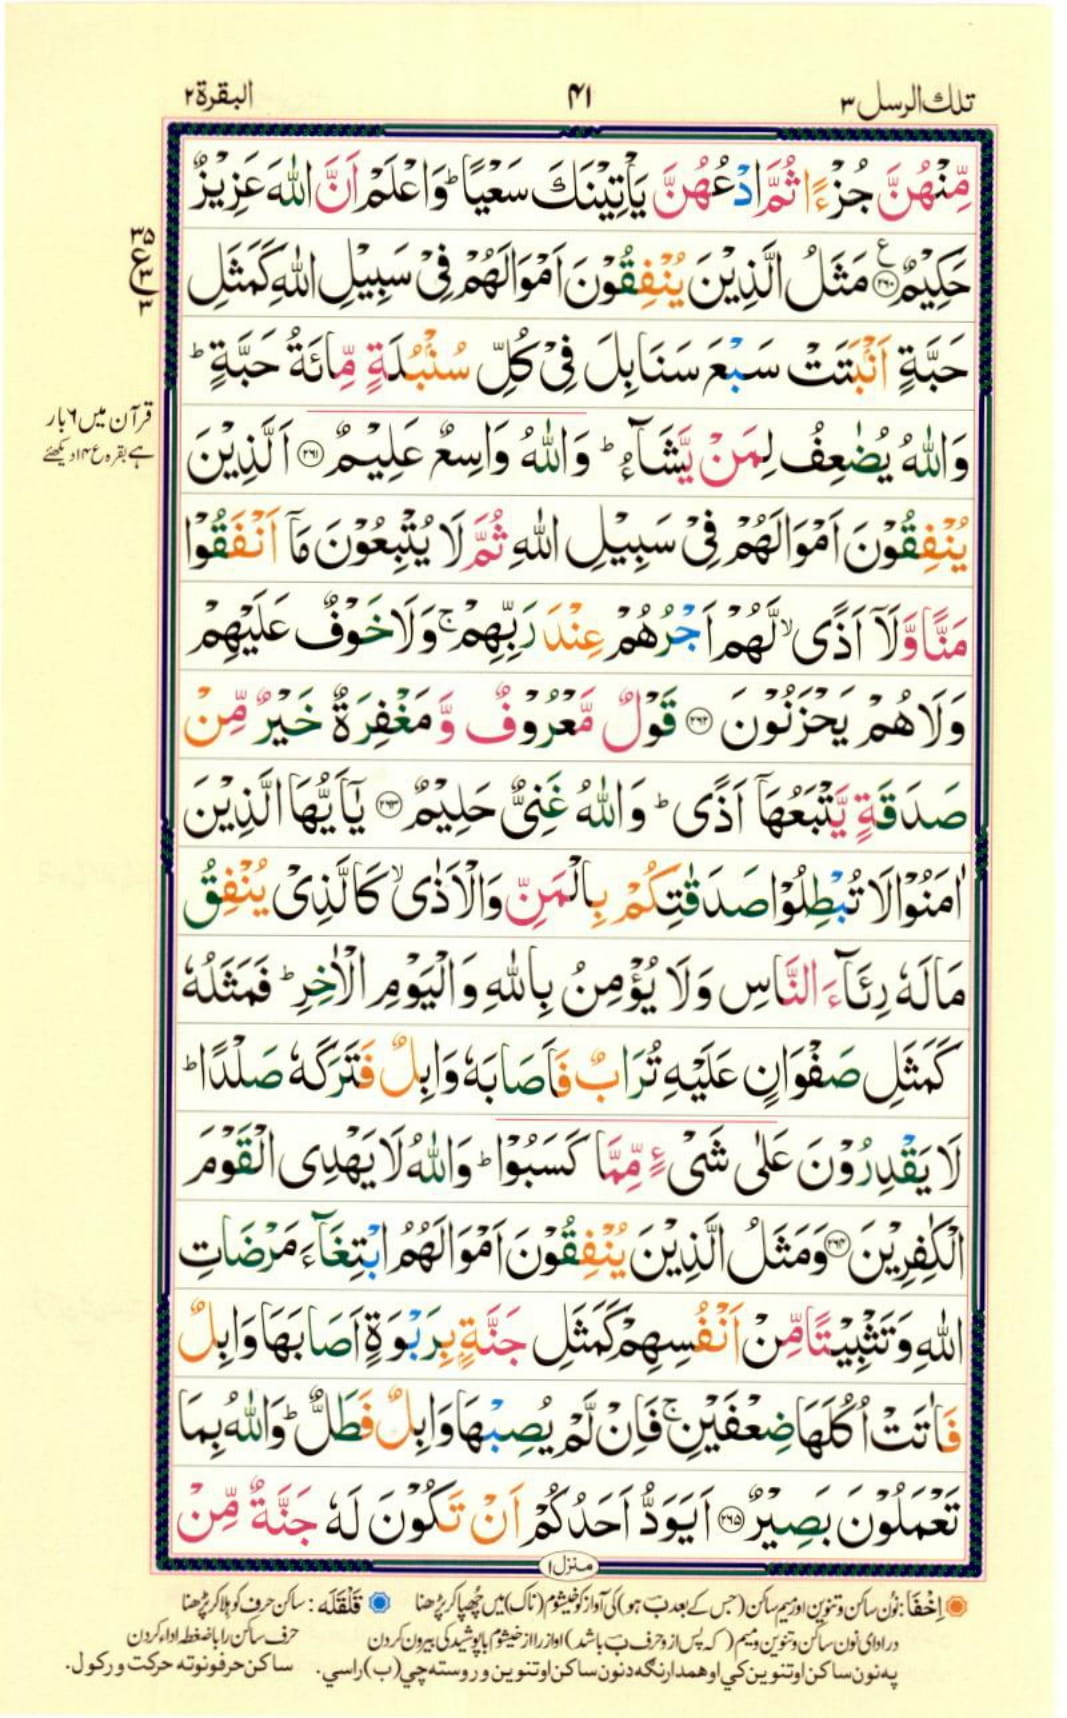 تلك الرسل ۳
۴۱
البقرة ۲
مِّنْهُنَّ جُزْءًا ثُمَّ ادْعُهُنَّ يَاْتِيْنَكَ سَعْيًا ؕ وَاعْلَمْ اَنَّ اللّٰهَ عَزِيْزٌ
حَكِيْمٌ ۝۲۶۰ ع مَثَلُ الَّذِيْنَ يُنْفِقُوْنَ اَمْوَالَهُمْ فِيْ سَبِيْلِ اللّٰهِ كَمَثَلِ
حَبَّةٍ اَنْۢبَتَتْ سَبْعَ سَنَابِلَ فِيْ كُلِّ سُنْۢبُلَةٍ مِّائَةُ حَبَّةٍ ؕ
وَاللّٰهُ يُضٰعِفُ لِمَنْ يَّشَآءُ ؕ وَاللّٰهُ وَاسِعٌ عَلِيْمٌ ۝۲۶۱ اَلَّذِيْنَ
يُنْفِقُوْنَ اَمْوَالَهُمْ فِيْ سَبِيْلِ اللّٰهِ ثُمَّ لَا يُتْبِعُوْنَ مَآ اَنْفَقُوْا
مَنًّا وَّلَآ اَذًى ۙ لَّهُمْ اَجْرُهُمْ عِنْدَ رَبِّهِمْ ۚ وَلَا خَوْفٌ عَلَيْهِمْ
وَلَا هُمْ يَحْزَنُوْنَ ۝۲۶۲ قَوْلٌ مَّعْرُوْفٌ وَّمَغْفِرَةٌ خَيْرٌ مِّنْ
صَدَقَةٍ يَّتْبَعُهَآ اَذًى ؕ وَاللّٰهُ غَنِيٌّ حَلِيْمٌ ۝۲۶۳ يٰٓاَيُّهَا الَّذِيْنَ
اٰمَنُوْا لَا تُبْطِلُوْا صَدَقٰتِكُمْ بِالْمَنِّ وَالْاَذٰى ۙ كَالَّذِيْ يُنْفِقُ
مَالَهٗ رِئَآءَ النَّاسِ وَلَا يُؤْمِنُ بِاللّٰهِ وَالْيَوْمِ الْاٰخِرِ ؕ فَمَثَلُهٗ
كَمَثَلِ صَفْوَانٍ عَلَيْهِ تُرَابٌ فَاَصَابَهٗ وَابِلٌ فَتَرَكَهٗ صَلْدًا ؕ
لَا يَقْدِرُوْنَ عَلٰى شَيْءٍ مِّمَّا كَسَبُوْا ؕ وَاللّٰهُ لَا يَهْدِى الْقَوْمَ
الْكٰفِرِيْنَ ۝۲۶۴ وَمَثَلُ الَّذِيْنَ يُنْفِقُوْنَ اَمْوَالَهُمُ ابْتِغَآءَ مَرْضَاتِ
اللّٰهِ وَتَثْبِيْتًا مِّنْ اَنْفُسِهِمْ كَمَثَلِ جَنَّةٍۭ بِرَبْوَةٍ اَصَابَهَا وَابِلٌ
فَاٰتَتْ اُكُلَهَا ضِعْفَيْنِ ۚ فَاِنْ لَّمْ يُصِبْهَا وَابِلٌ فَطَلٌّ ؕ وَاللّٰهُ بِمَا
تَعْمَلُوْنَ بَصِيْرٌ ۝۲۶۵ اَيَوَدُّ اَحَدُكُمْ اَنْ تَكُوْنَ لَهٗ جَنَّةٌ مِّنْ
۳۵
ع ۳
۳
قرآن میں ۶ بار
ہے بقرہ ع ۱۴ دیکھئے
منزل ۱
اِخْفَا: نُون ساکن و تنوین اور میم ساکن (جس کے بعد بَ ہو) کی آواز کو خیشوم (ناک) میں چُھپا کر پڑھنا قَلْقَلَه: ساکن حرف کو ہلا کر پڑھنا
در ادای نون ساکن و تنوین و میم (که پس از و حرف بَ باشد) آواز را از خیشوم با پوشیدگی بیرون کردن حرف ساکن را با ضغطه اداء کردن
په نون ساکن او تنوین کي او همدارنګه د نون ساکن او تنوین و روسته چي (ب) راسي. ساکن حرفونو ته حرکت ورکول.